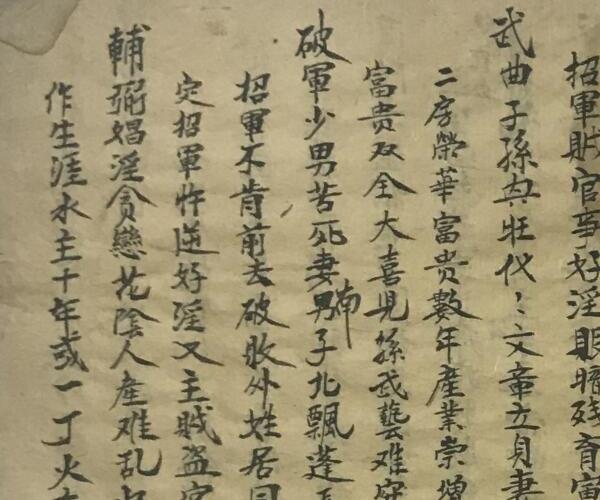 招軍賊官事好淫眼瞎残育寅
武曲子孫典旺代〻文章立貞妻
二房榮華富贵數年産業崇増
富贵双全大喜児孫武藝难守
破軍少男苦死妻男子南北飄蓬
招軍不肯前去破敗外姓居同
定招軍忤逆好淫又主賊盗官
輔弼娼淫貪戀花陰人産难乱
作生涯水主十年或一丁火